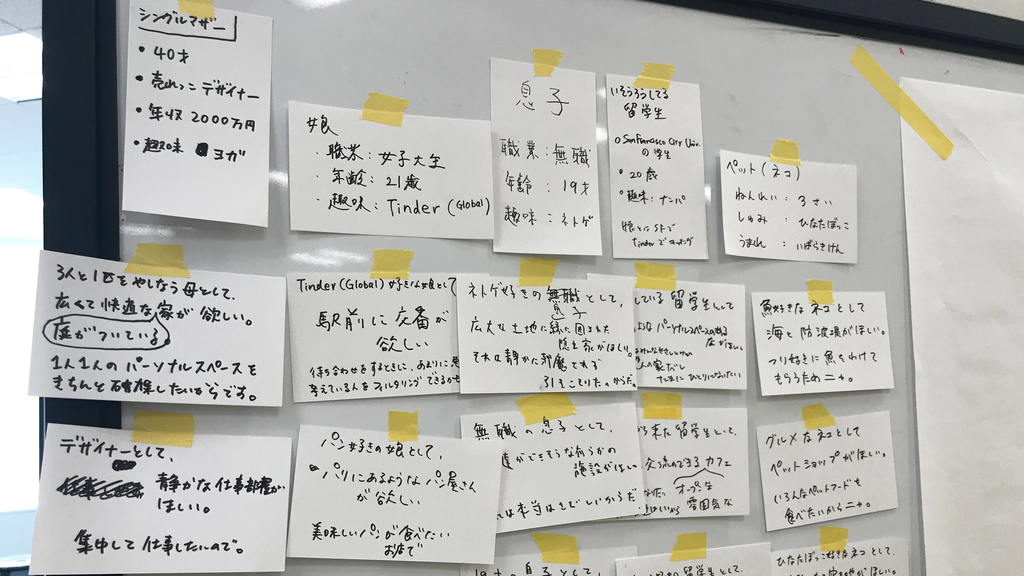 シングルマザー
• 40才
• 売れっこ デザイナー
• 年収 2000万円
• 趣味 ヨガ
娘
・職業：女子大生
・年齢：21歳
・趣味：Tinder (Global)
息子
職業：無職
年齢：19才
趣味：ネトゲ
いそうろうしてる
留学生
○ San Francisco City Univ.
の学生
• 20歳
• 趣味：ナンパ
娘とは SFで
Tinderで
ペット（ネコ）
ねんれい：3さい
しゅみ：ひなたぼっこ
うまれ：いばらきけん
3人と1匹をやしなう母として、
広くて快適な家が欲しい。
庭がついている
1人1人のパーソナルスペースを
きちんと確保したいからです。
Tinder (Global) 好きな娘として
駅前に交番が
欲しい
待ち合わせをするときに、あらかじめ
考えている人をフィルタリングできるから
ネトゲ好きの無職として、
息子
広大な土地に緑に囲まれた
隠れ家がほしい。
それは静かに邪魔されず
引きこもりたいからだ。
している 留学生として
ような パーソナルスペースのある
庄がほしい。
たまにひとりになりたい
魚好きなネコとして
海と防波堤がほしい。
つり好きに魚をわけて
もらうためニャ。
デザイナーとして、
静かな仕事部屋が
ほしい。
集中して仕事したいので。
パン好きの娘として、
パリにあるようなパン屋さん
が欲しい
美味しいパンが食べたい
お店で
無職の息子として、
達ができそうな街うかの
施設がほしい
は本当は
ら来た留学生として、
交流のできるカフェ
オープンな
雰囲気な
グルメなネコとして
ペットショップがほしい。
いろんなペットフードを
食べたいからニャ。
19才の息子として、
留学生として、
ひなたぼっこ好きなネコとして、
がほしい。